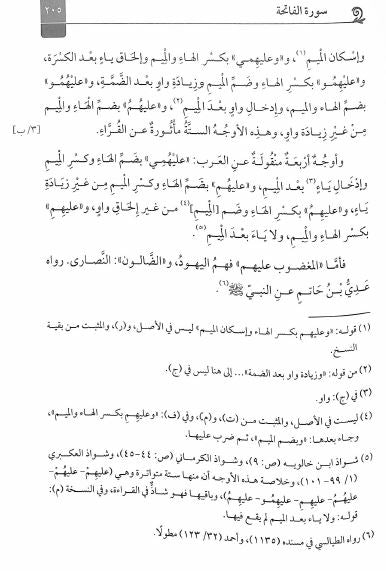 سورة الفاتحة
٢٠٥
وإسكان الميم(١)، و«وعليهمي» بكسر الهاء والميم وإلحاق ياءٍ بعد الكسرَة،
و«عليهمُو» بكسر الهاءِ وضَمِّ الميمِ وزيادةِ واوٍ بعد الضَّمةِ، و«عليهُمُو»
بضم الهاء والميم، وإدخالِ واوٍ بعدَ الميمِ(٢)، و«عليهُمُ» بضم الهاءِ والميمِ
مِنْ غيرِ زيَادة واوٍ، وهذه الأوجُهُ الستَّةُ مأثُورةٌ عن القُرَّاءِ.
[٣/ب]
وأوجُهٌ أربَعةٌ منْقُولَةٌ عن العرَب: «عليْهُمِي» بضَمِّ الهَاءِ وكسْرِ الميْمِ
وإدخَالِ يَاءٍ(٣) بعْد الميم، و«عليهُمِ» بضَمِّ الهَاءِ وكسرِ الميْمِ مِن غيْر زيَادَةِ
يَاءٍ، و«عليهِمُ» بكسْرِ الهَاءِ وضَم [الميمِ](٤) من غير إلحَاقِ واوٍ، و«عليهِمِ»
بكسْرِ الهاءِ والميمِ، ولا يَاءَ بعْدَ الميْمِ(٥).
فأمَّا «المغضوب عليهم» فهمُ اليهودُ، و«الضَّالون»: النَّصارى. رواه
عَدِيُّ بْنُ حَاتمٍ عن النبيِّ ﷺ(٦).
(١) قوله: «وعليهم بكسر الهاء وإسكان الميم» ليس في الأصل، و(ر)، والمثبت من بقية
النسخ.
(٢) من قوله: «وزيادة واو بعد الضمة»... إلى هنا ليس في (ج).
(٣) في (ج): واو.
(٤) ليست في الأصل، والمثبت من (ت)، و(م)، وفي (ف): «وعليهم بكسر الهاء والميم»،
وجاء بعدها: «وبضم الميم»، ثم ضرب عليها.
(٥) شواذ ابن خالويه (ص: ٩)، وشواذ الكرماني (ص: ٤٤-٤٥)، وشواذ العكبري
(١/ ٩٩-١٠١)، وخلاصة هذه الأوجه أن منها ستة متواترة وهي (عليهِمْ- عليهُمْ-
عليهُمُ- عليهِمِ- عليهِمُو- عليهِمُ)، وباقيها فهو شاذٌّ في القراءة، وفي النسخة (م):
قوله: ولا ياء بعد الميم لم يقع فيها.
(٦) رواه الطيالسي في مسنده (١١٣٥)، وأحمد (٣٢/ ١٢٣) مطولًا.